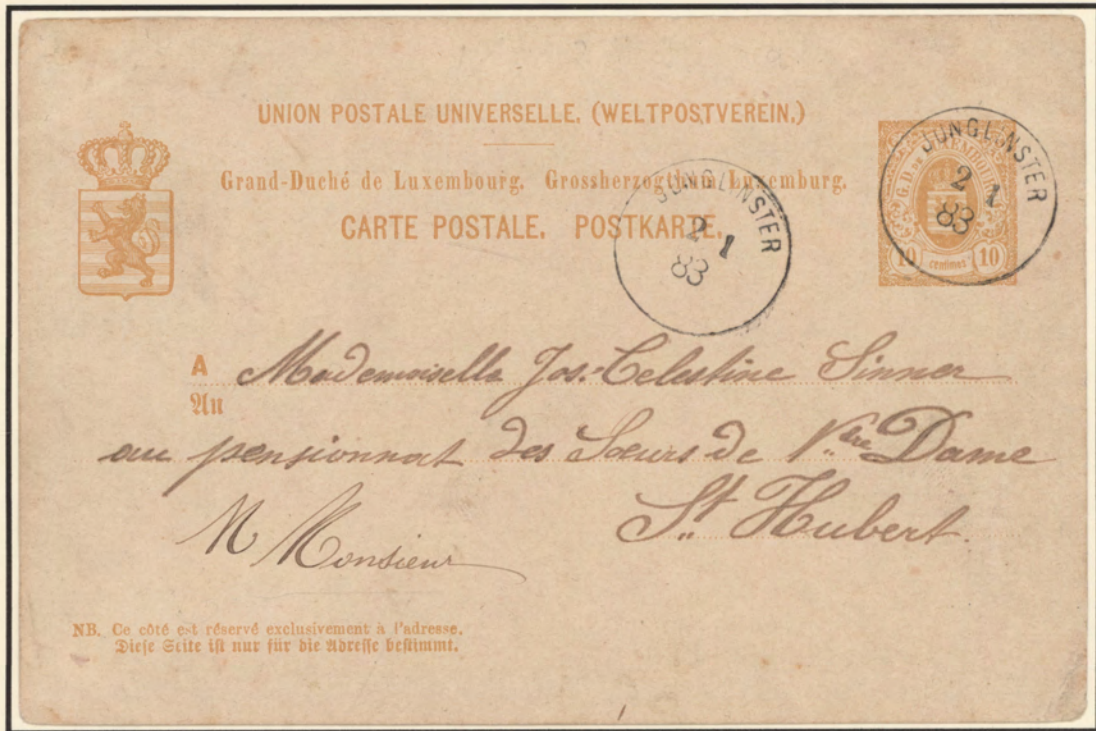 UNION POSTALE UNIVERSELLE. (WELTPOSTVEREIN.)
Grand-Duché de Luxembourg. Grossherzogthum Luxemburg.
CARTE POSTALE. POSTKARTE.
G. D. DE LUXEMBOURG
10 CENTIMES 10
JUNGLINSTER
2 1
83
JUNGLINSTER
2 1
83
A Mademoiselle Jos. Celestine Sinner
An
au pensionnat des Soeurs de Ntre Dame
St Hubert.
N Monsieur
NB. Ce côté est réservé exclusivement à l'adresse.
Diese Seite ist nur für die Adresse bestimmt.